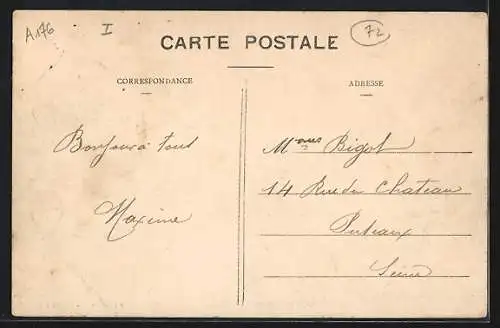 A176
I
72
CARTE POSTALE
CORRESPONDANCE
Bonjour à tous
Maxime
ADRESSE
Mmes Bigot
14 Rue du Chateau
Puteaux
Seine